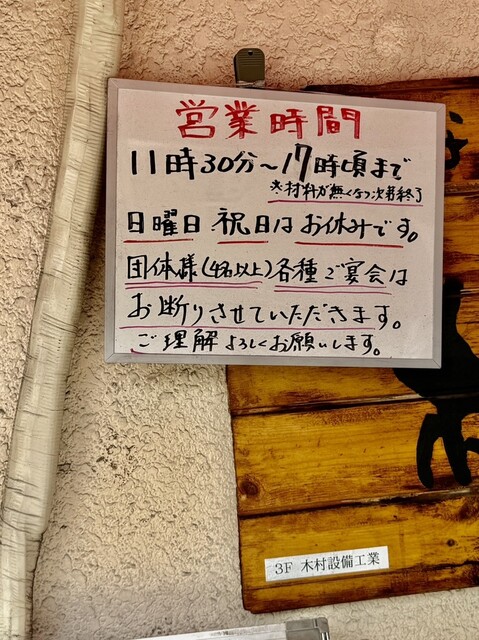 営業時間
11時30分～17時頃まで
※材料が無くなり次第終了
日曜日 祝日はお休みです。
団体様(4名以上)各種ご宴会は
お断りさせていただきます。
ご理解よろしくお願いします。
3F 木村設備工業